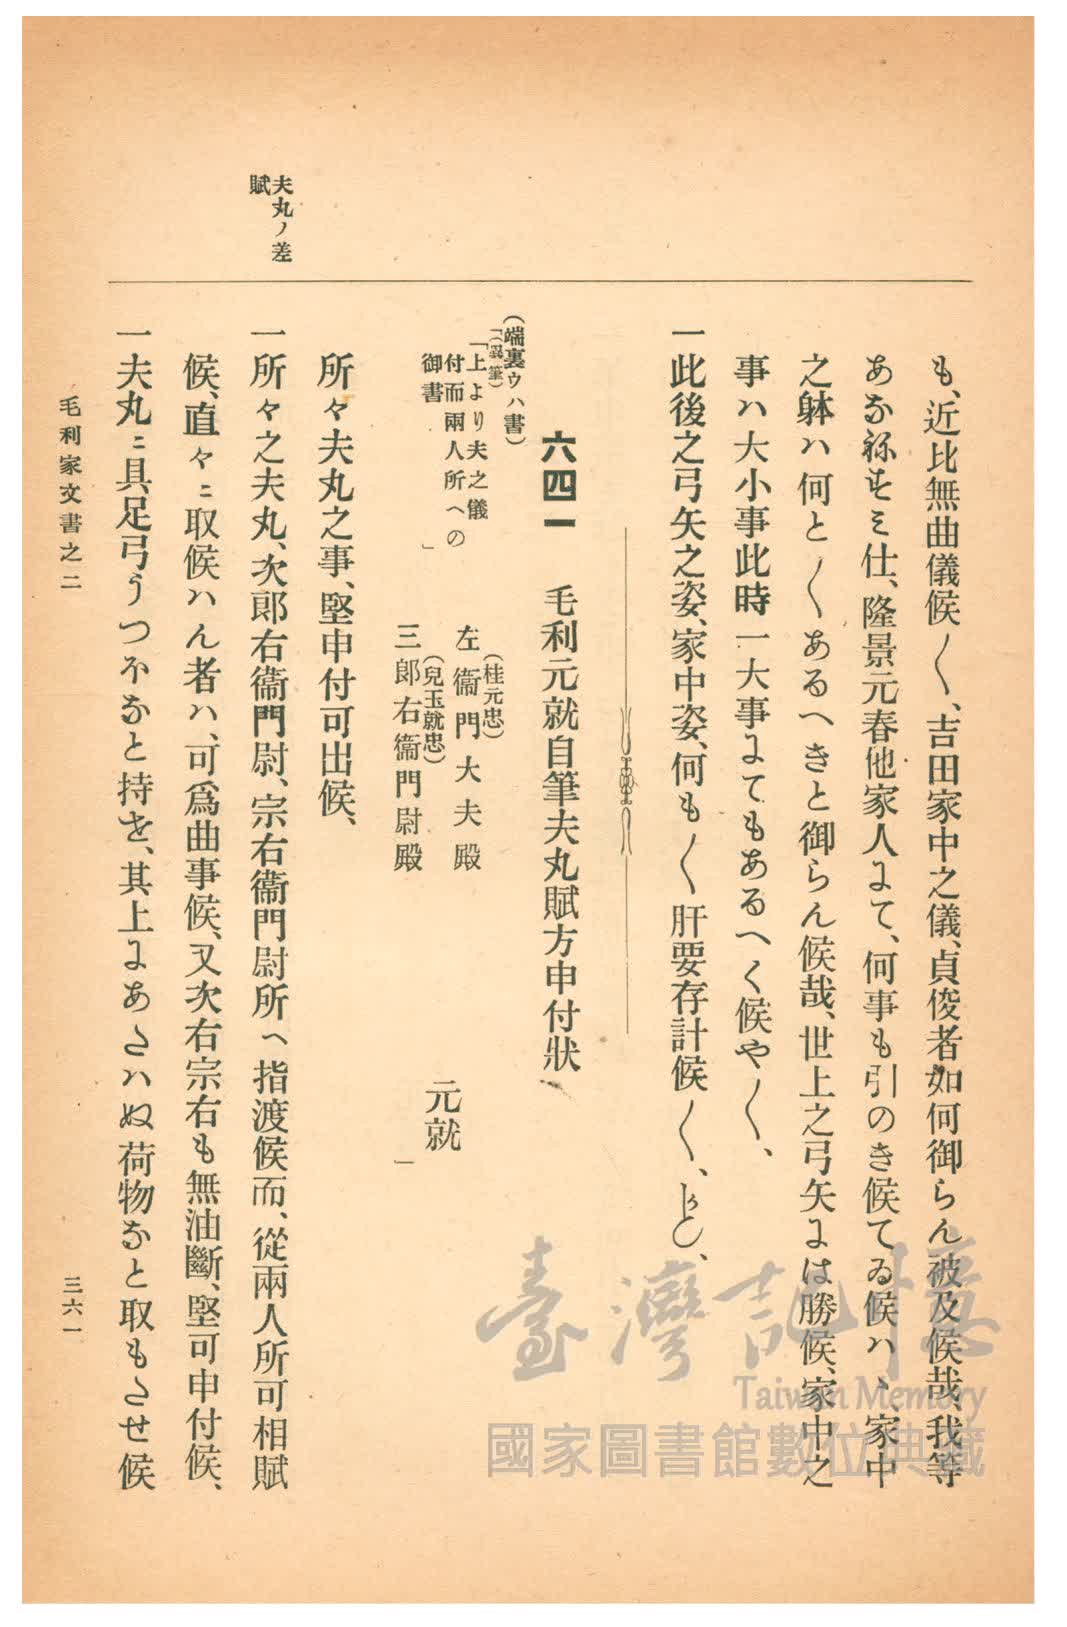 も、近比無曲儀候〱、吉田家中之儀、貞俊者如何御らん被及候哉、我等
あなねすミ仕、隆景元春他家人にて、何事も引のき候てゐ候ハヽ、家中
之躰ハ何と〱あるへきと御らん候哉、世上之弓矢には勝候、家中之
事ハ大小事此時一大事にてもあるへく候や〱、
一此後之弓矢之姿、家中姿、何も〱肝要存計候〱、かしく、
六四一 毛利元就自筆夫丸賦方申付狀
(端裏ウハ書)
「(異筆)
「上より夫之儀
付而兩人所への
御書 」
(桂元忠)
左衞門大夫殿
(兒玉就忠)
三郞右衞門尉殿
元就
」
所々夫丸之事、堅申付可出候、
夫丸ノ差
賦
一所々之夫丸、次郞右衞門尉、宗右衞門尉所へ指渡候而、從兩人所可相賦
候、直々ニ取候ハん者ハ、可爲曲事候、又次右宗右も無油斷、堅可申付候、
一夫丸ニ具足弓うつほなと持せ、其上にあたハぬ荷物なと取もたせ候
毛利家文書之二
三六一
臺灣記憶
Taiwan Memory
國家圖書館數位典藏